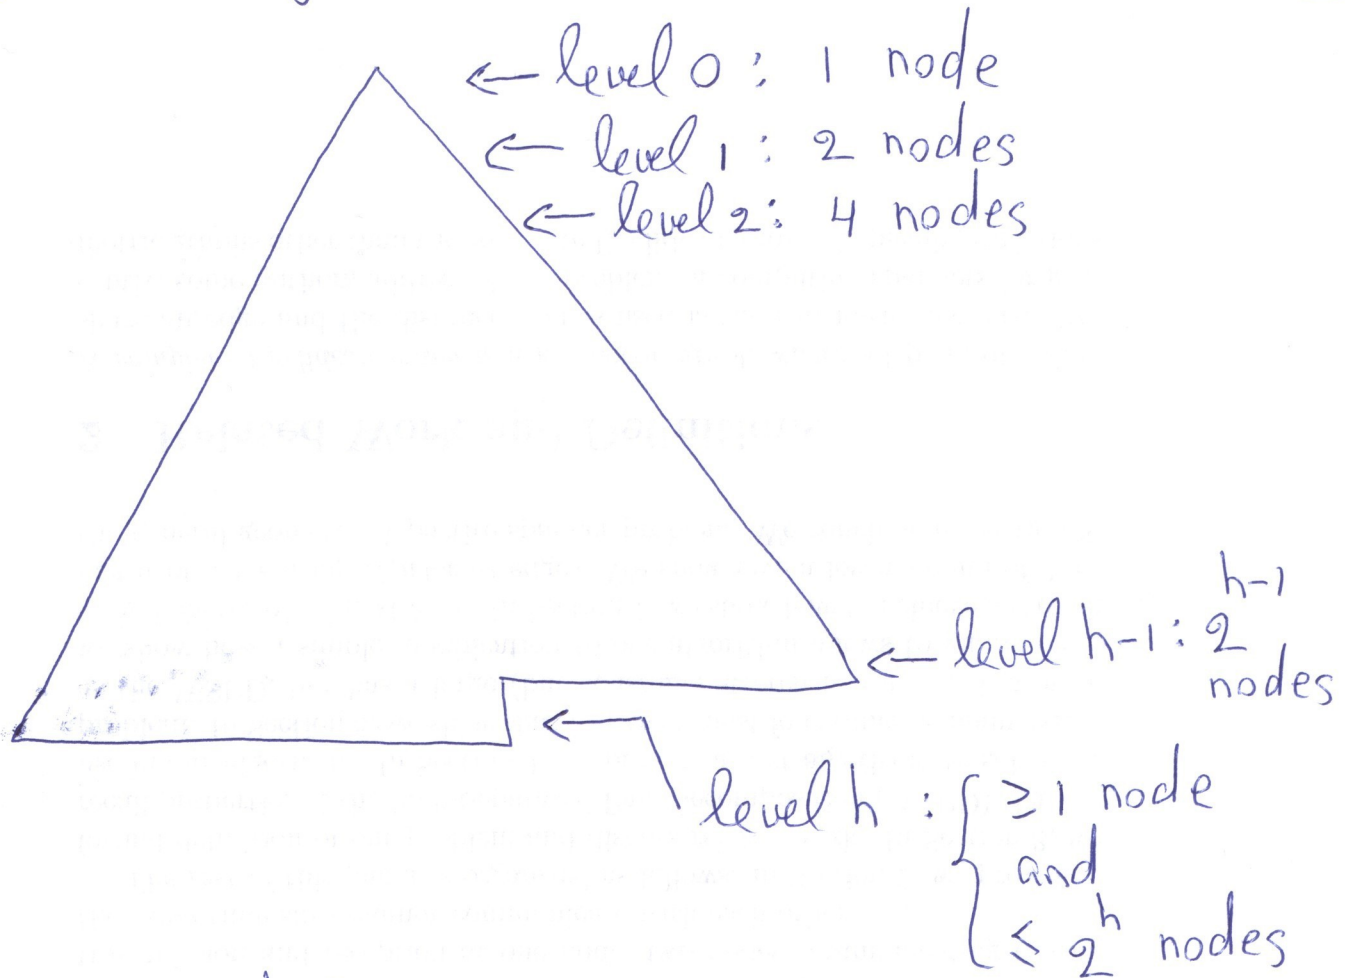 ← level 0 : 1 node
← level 1 : 2 nodes
← level 2 : 4 nodes
← level h-1 : 2^{h-1} nodes
← level h : { ≥ 1 node
and
≤ 2^h nodes